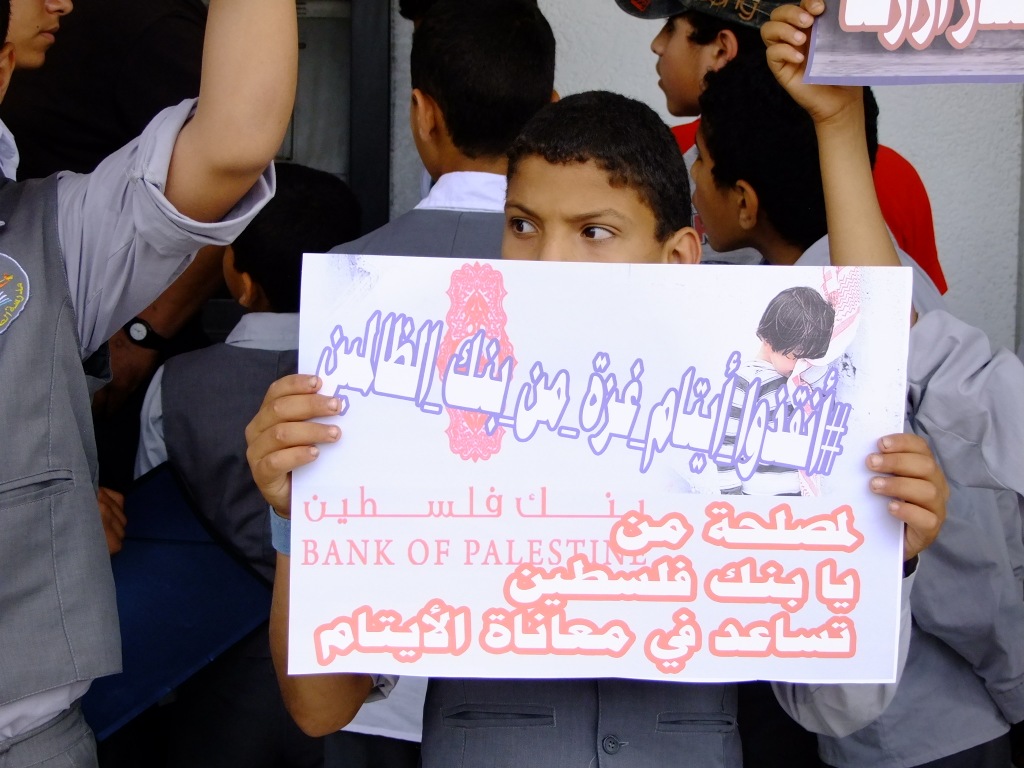 #أنقذوا_أيتام_غزة_من_بنك_الظالمين
بنك فلسطين
BANK OF PALESTINE
لمصلحة من
يا بنك فلسطين
تساعد في معاناة الأيتام